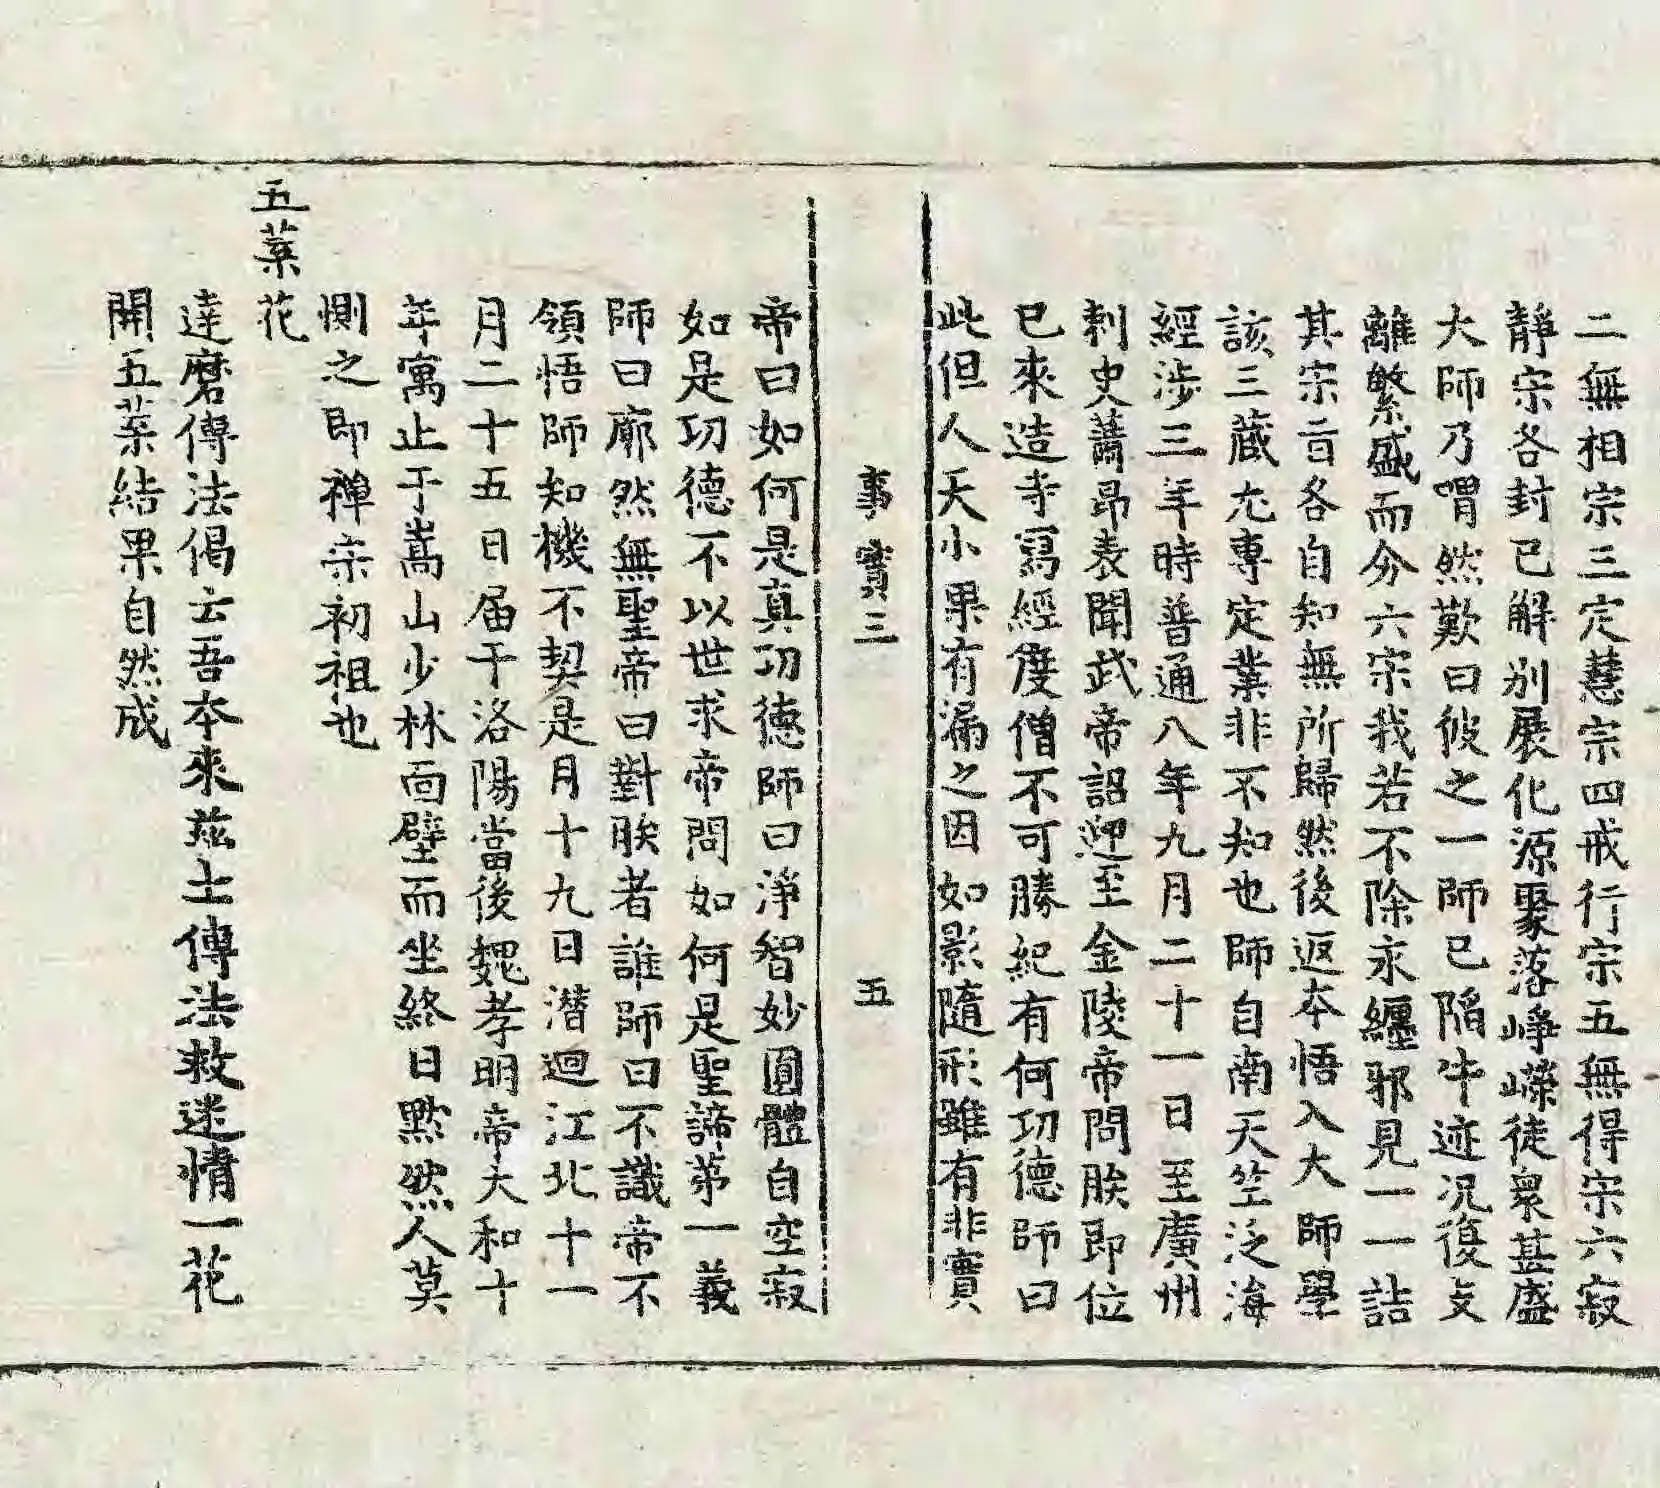 二無相宗三定慧宗四戒行宗五無得宗六寂
靜宗各封已解別展化源聚落崢嶸徒衆甚盛
大師乃喟然歎曰彼之一師已陷牛迹况復支
離繁盛而分六宗我若不除永纏邪見一一詰
其宗旨各自知無所歸然後返本悟入大師學
該三藏尤專定業非不知也師自南天竺泛海
經涉三年時普通八年九月二十一日至廣州
刺史蕭昂表聞武帝詔迎至金陵帝問朕即位
已來造寺寫經度僧不可勝紀有何功德師曰
此但人天小果有漏之因如影隨形雖有非實
事實三
五
帝曰如何是真功德師曰淨智妙圓體自空寂
如是功德不以世求帝問如何是聖諦第一義
師曰廓然無聖帝曰對朕者誰師曰不識帝不
領悟師知機不契是月十九日潛迴江北十一
月二十五日届于洛陽當後魏孝明帝大和十
年寓止于嵩山少林面壁而坐終日默然人莫
惻之即禪宗初祖也
五葉花
達磨傳法偈云吾本來茲土傳法救迷情一花
開五葉結果自然成